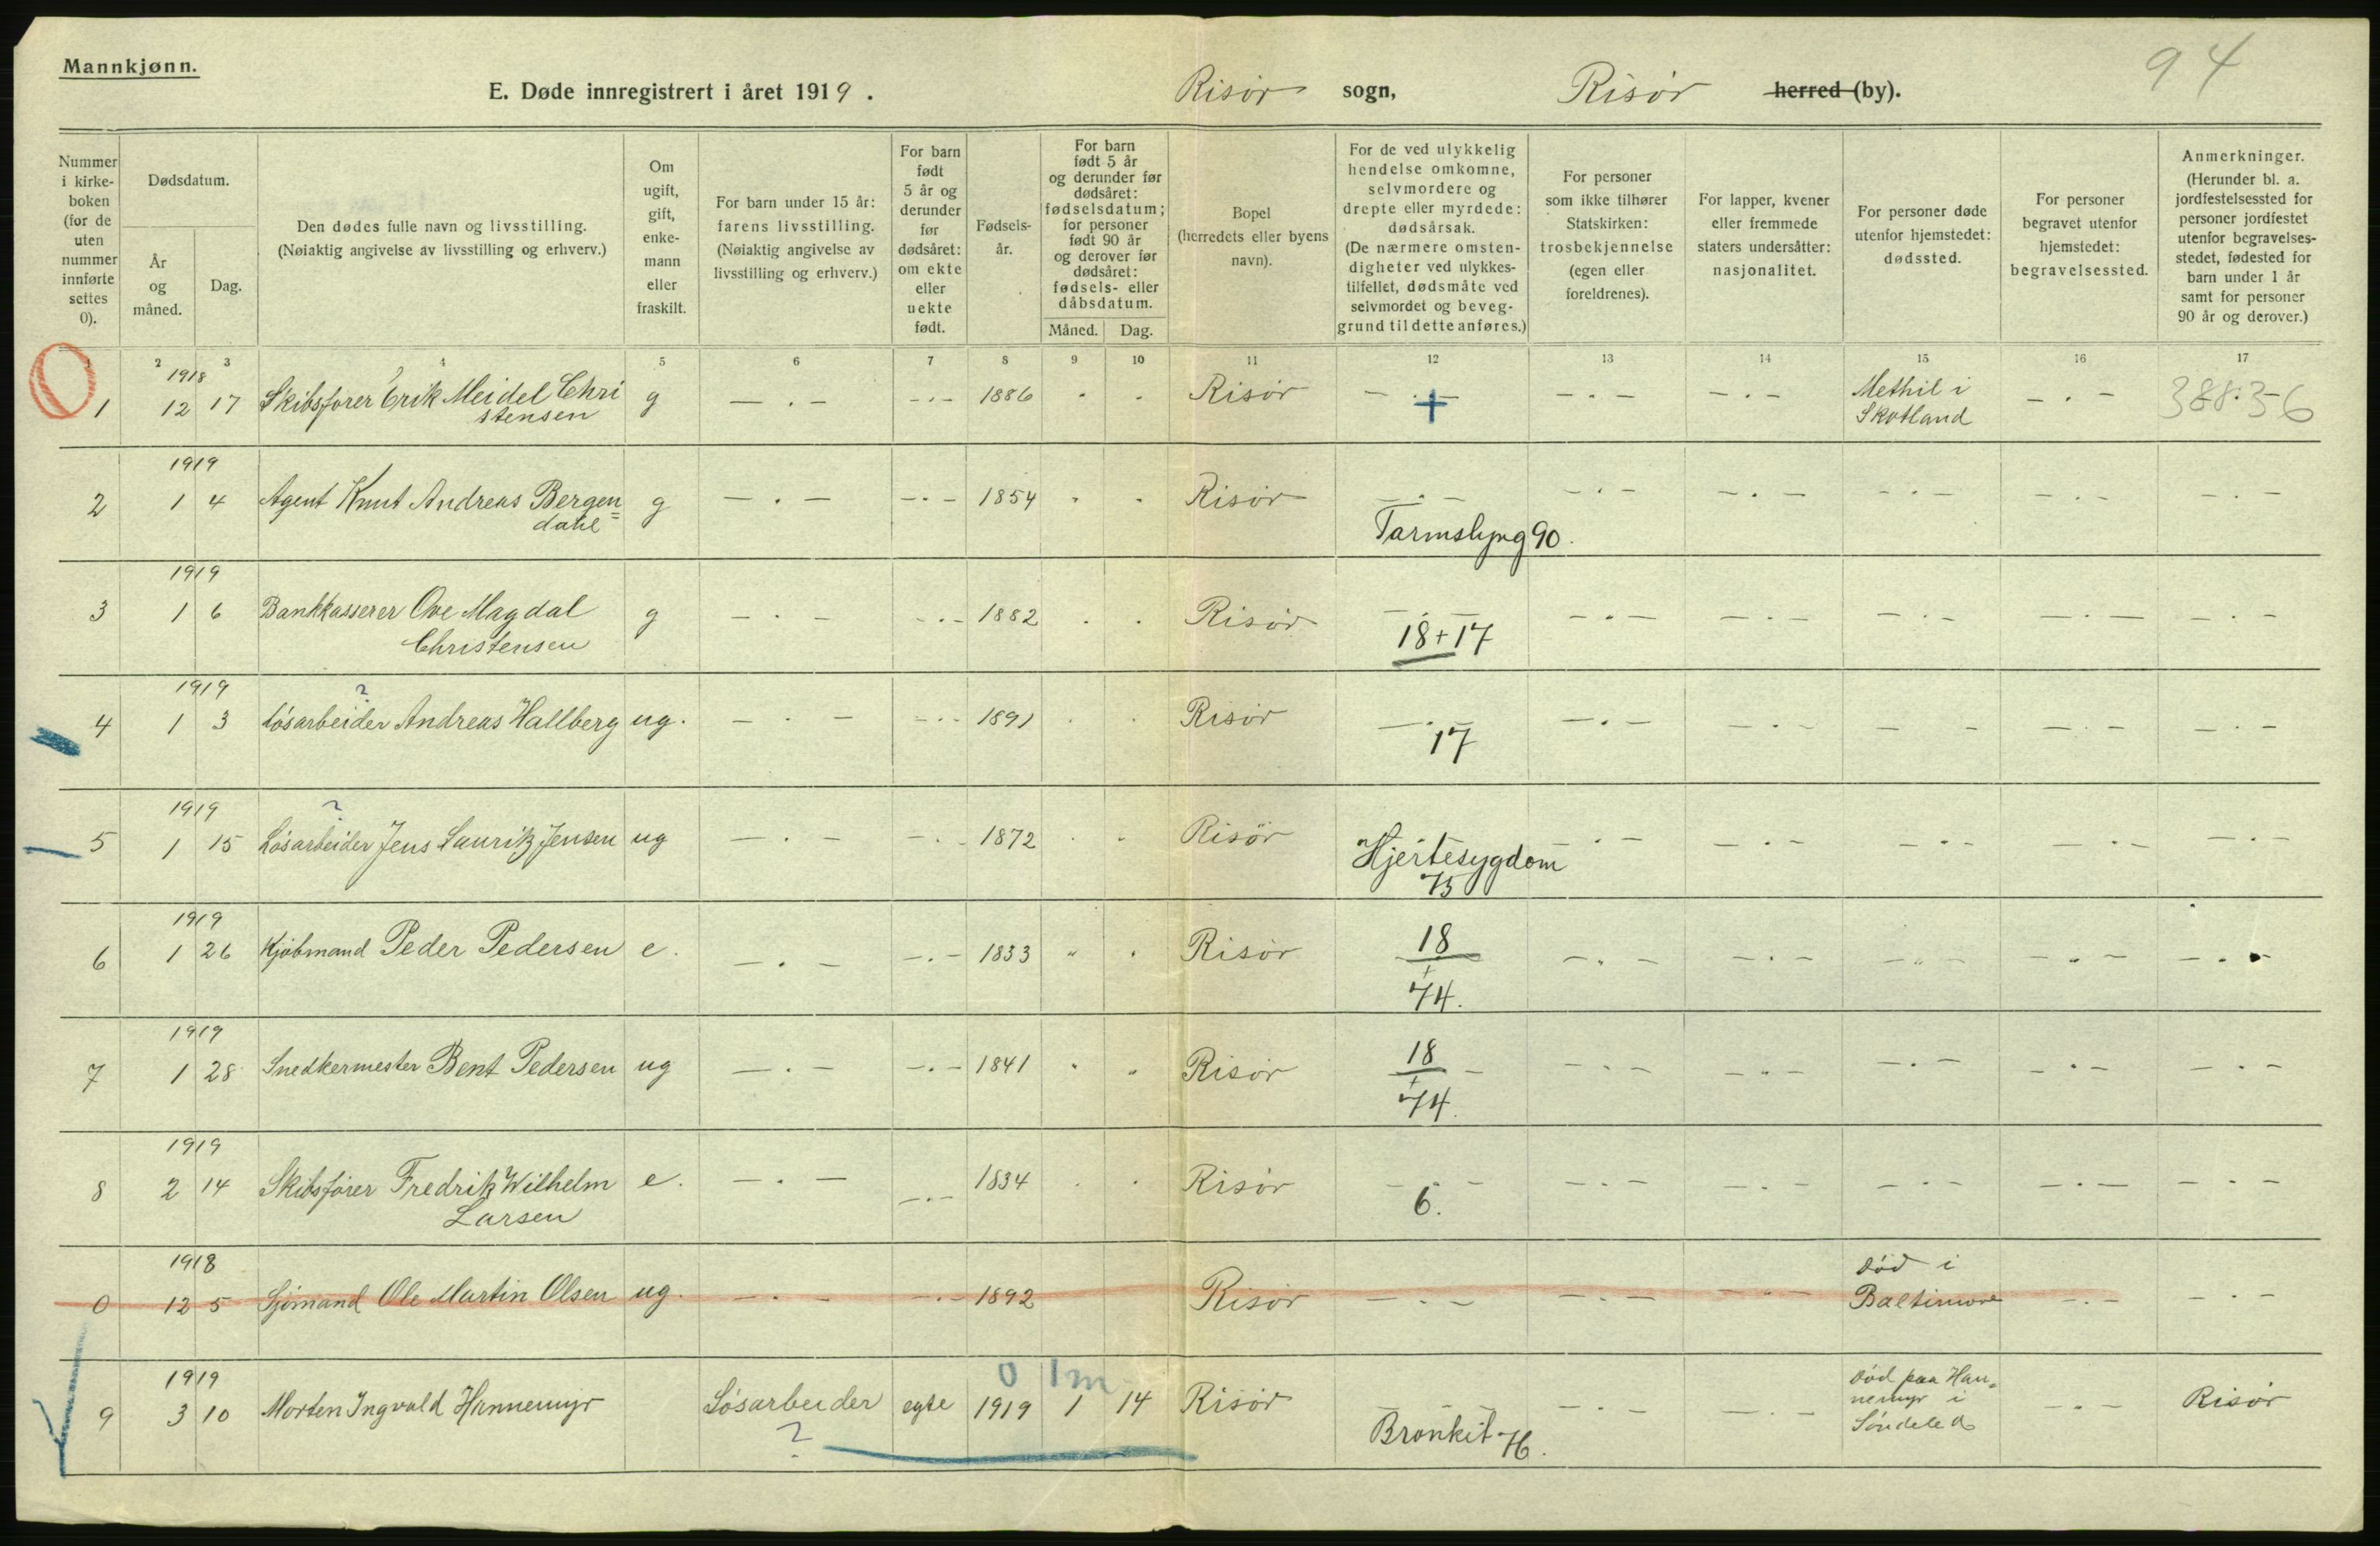 Mannkjønn.
94
E. Døde innregistrert i året 1919. Risør sogn, Risør herred (by).
Nummer i kirkeboken (for de uten nummer innførte settes 0).
Dødsdatum.
År og måned.
Dag.
Den dødes fulle navn og livsstilling. (Nøiaktig angivelse av livsstilling og erhverv.)
Om ugift, gift, enkemann eller fraskilt.
For barn under 15 år: farens livsstilling. (Nøiaktig angivelse av livsstilling og erhverv.)
For barn født 5 år og derunder før dødsåret: om ekte eller uekte født.
Fødselsår.
For barn født 5 år og derunder før dødsåret: fødselsdatum; for personer født 90 år og derover før dødsåret: fødsels- eller dåbsdatum.
Måned. Dag.
Bopel (herredets eller byens navn).
For de ved ulykkelig hendelse omkomne, selvmordere og drepte eller myrdede: dødsårsak. (De nærmere omstendigheter ved ulykkestilfellet, dødsmåte ved selvmordet og beveggrund til dette anføres.)
For personer som ikke tilhører Statskirken: trosbekjennelse (egen eller foreldrenes).
For lapper, kvener eller fremmede staters undersåtter: nasjonalitet.
For personer døde utenfor hjemstedet: dødssted.
For personer begravet utenfor hjemstedet: begravelsessted.
Anmerkninger. (Herunder bl. a. jordfestelsessted for personer jordfestet utenfor begravelsesstedet, fødested for barn under 1 år samt for personer 90 år og derover.)
1 2 3 4 5 6 7 8 9 10 11 12 13 14 15 16 17
1918
1 12 17 Skibsfører Erik Meidel Chri g — . — — . — 1886 Risør — . — + — . — — . — Methil i — . — 388:36
stensen Skotland
1919
2 1 4 Agent Knut Andreas Bergen= g — . — — . — 1854 Risør — . — — . — — . — — . — — . — — . —
dahl Tarmslyng 90.
1919
3 1 6 Bankkasserer Ove Magdal g — . — — . — 1882 Risør — . — — . — — . — — . — — . — — . —
Christensen 18+17
1919
?
4 1 3 Løsarbeider Andreas Hallberg ug. — . — — . — 1891 Risør — . — — . — — . — — — — . — — . —
17
1919
?
5 1 15 Løsarbeider Jens Lauritz Jensen ug — . — — . — 1872 Risør Hjertesygdom — . — — . — — . — — . — — . —
75
1919
6 1 26 Kjøbmand Peder Pedersen e. — . — — . — 1833 Risør 18 — . — — . — — . — — . — — . —
+
74.
1919
7 1 28 Snedkermester Bent Pedersen ug — . — — . — 1841 Risør 18 — . — — . — — . — — . — — . —
+
74.
1919
8 2 14 Skibsfører Fredrik Wilhelm e. — . — — . — 1834 Risør — . — — . — — . — — . — — . — — . —
Larsen 6.
1918
0 12 5 Sjømand Ole Martin Olsen ug. — . — — . — 1892 Risør — . — — . — — . — Død i — . — — . —
Baltimore
0 1 m
1919
9 3 10 Morten Ingvald Hannemyr Løsarbeider egte 1919 1 14 Risør — — — — . — — . — Død paa Han= — . — Risør
? Bronkit 76. nemyr i
Søndeled